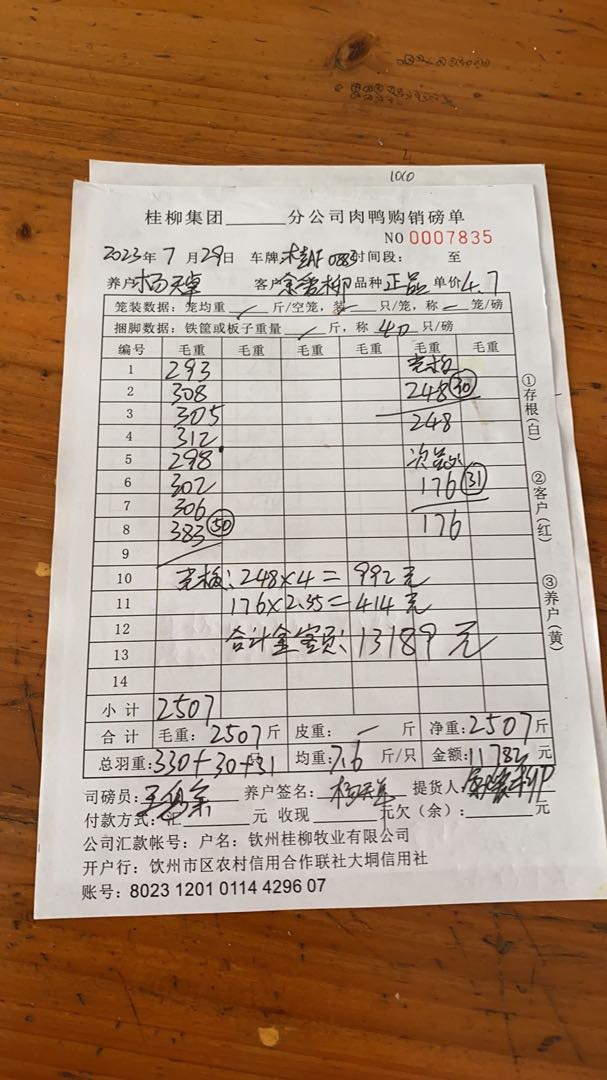 1000
桂柳集团______分公司肉鸭购销磅单
NO 0007835
2023年7月29日 车牌:桂AF 0883 时间段: 至
养户:杨天卓 客户:余雪柳 品种 正品 单价4.7
笼装数据:笼均重 / 斤/空笼,装 / 只/笼,称 — 笼/磅
捆脚数据:铁筐或板子重量 / 斤,称 40 只/磅
编号 毛重 毛重 毛重 毛重 毛重 毛重
1 293
2 308 248 (30)
3 305 248
4 312
5 298 次品:
6 302 176 (31)
7 306
8 383 (50) 176
9
10 248×4=992元
11 176×2.35=414元
12 合计金额:13189元
13
14
小计 2507
合计 毛重:2507斤 皮重: — 斤 净重:2507斤
总羽重:330+30+31 均重:7.6斤/只 金额:11782元
司磅员: 养户签名:杨天卓 提货人:余雪柳
付款方式: 元 收现______元欠(余):______元
公司汇款帐号:户名:钦州桂柳牧业有限公司
开户行:钦州市区农村信用合作联社大垌信用社
账号:8023 1201 0114 4296 07
①存根(白)
②客户(红)
③养户(黄)